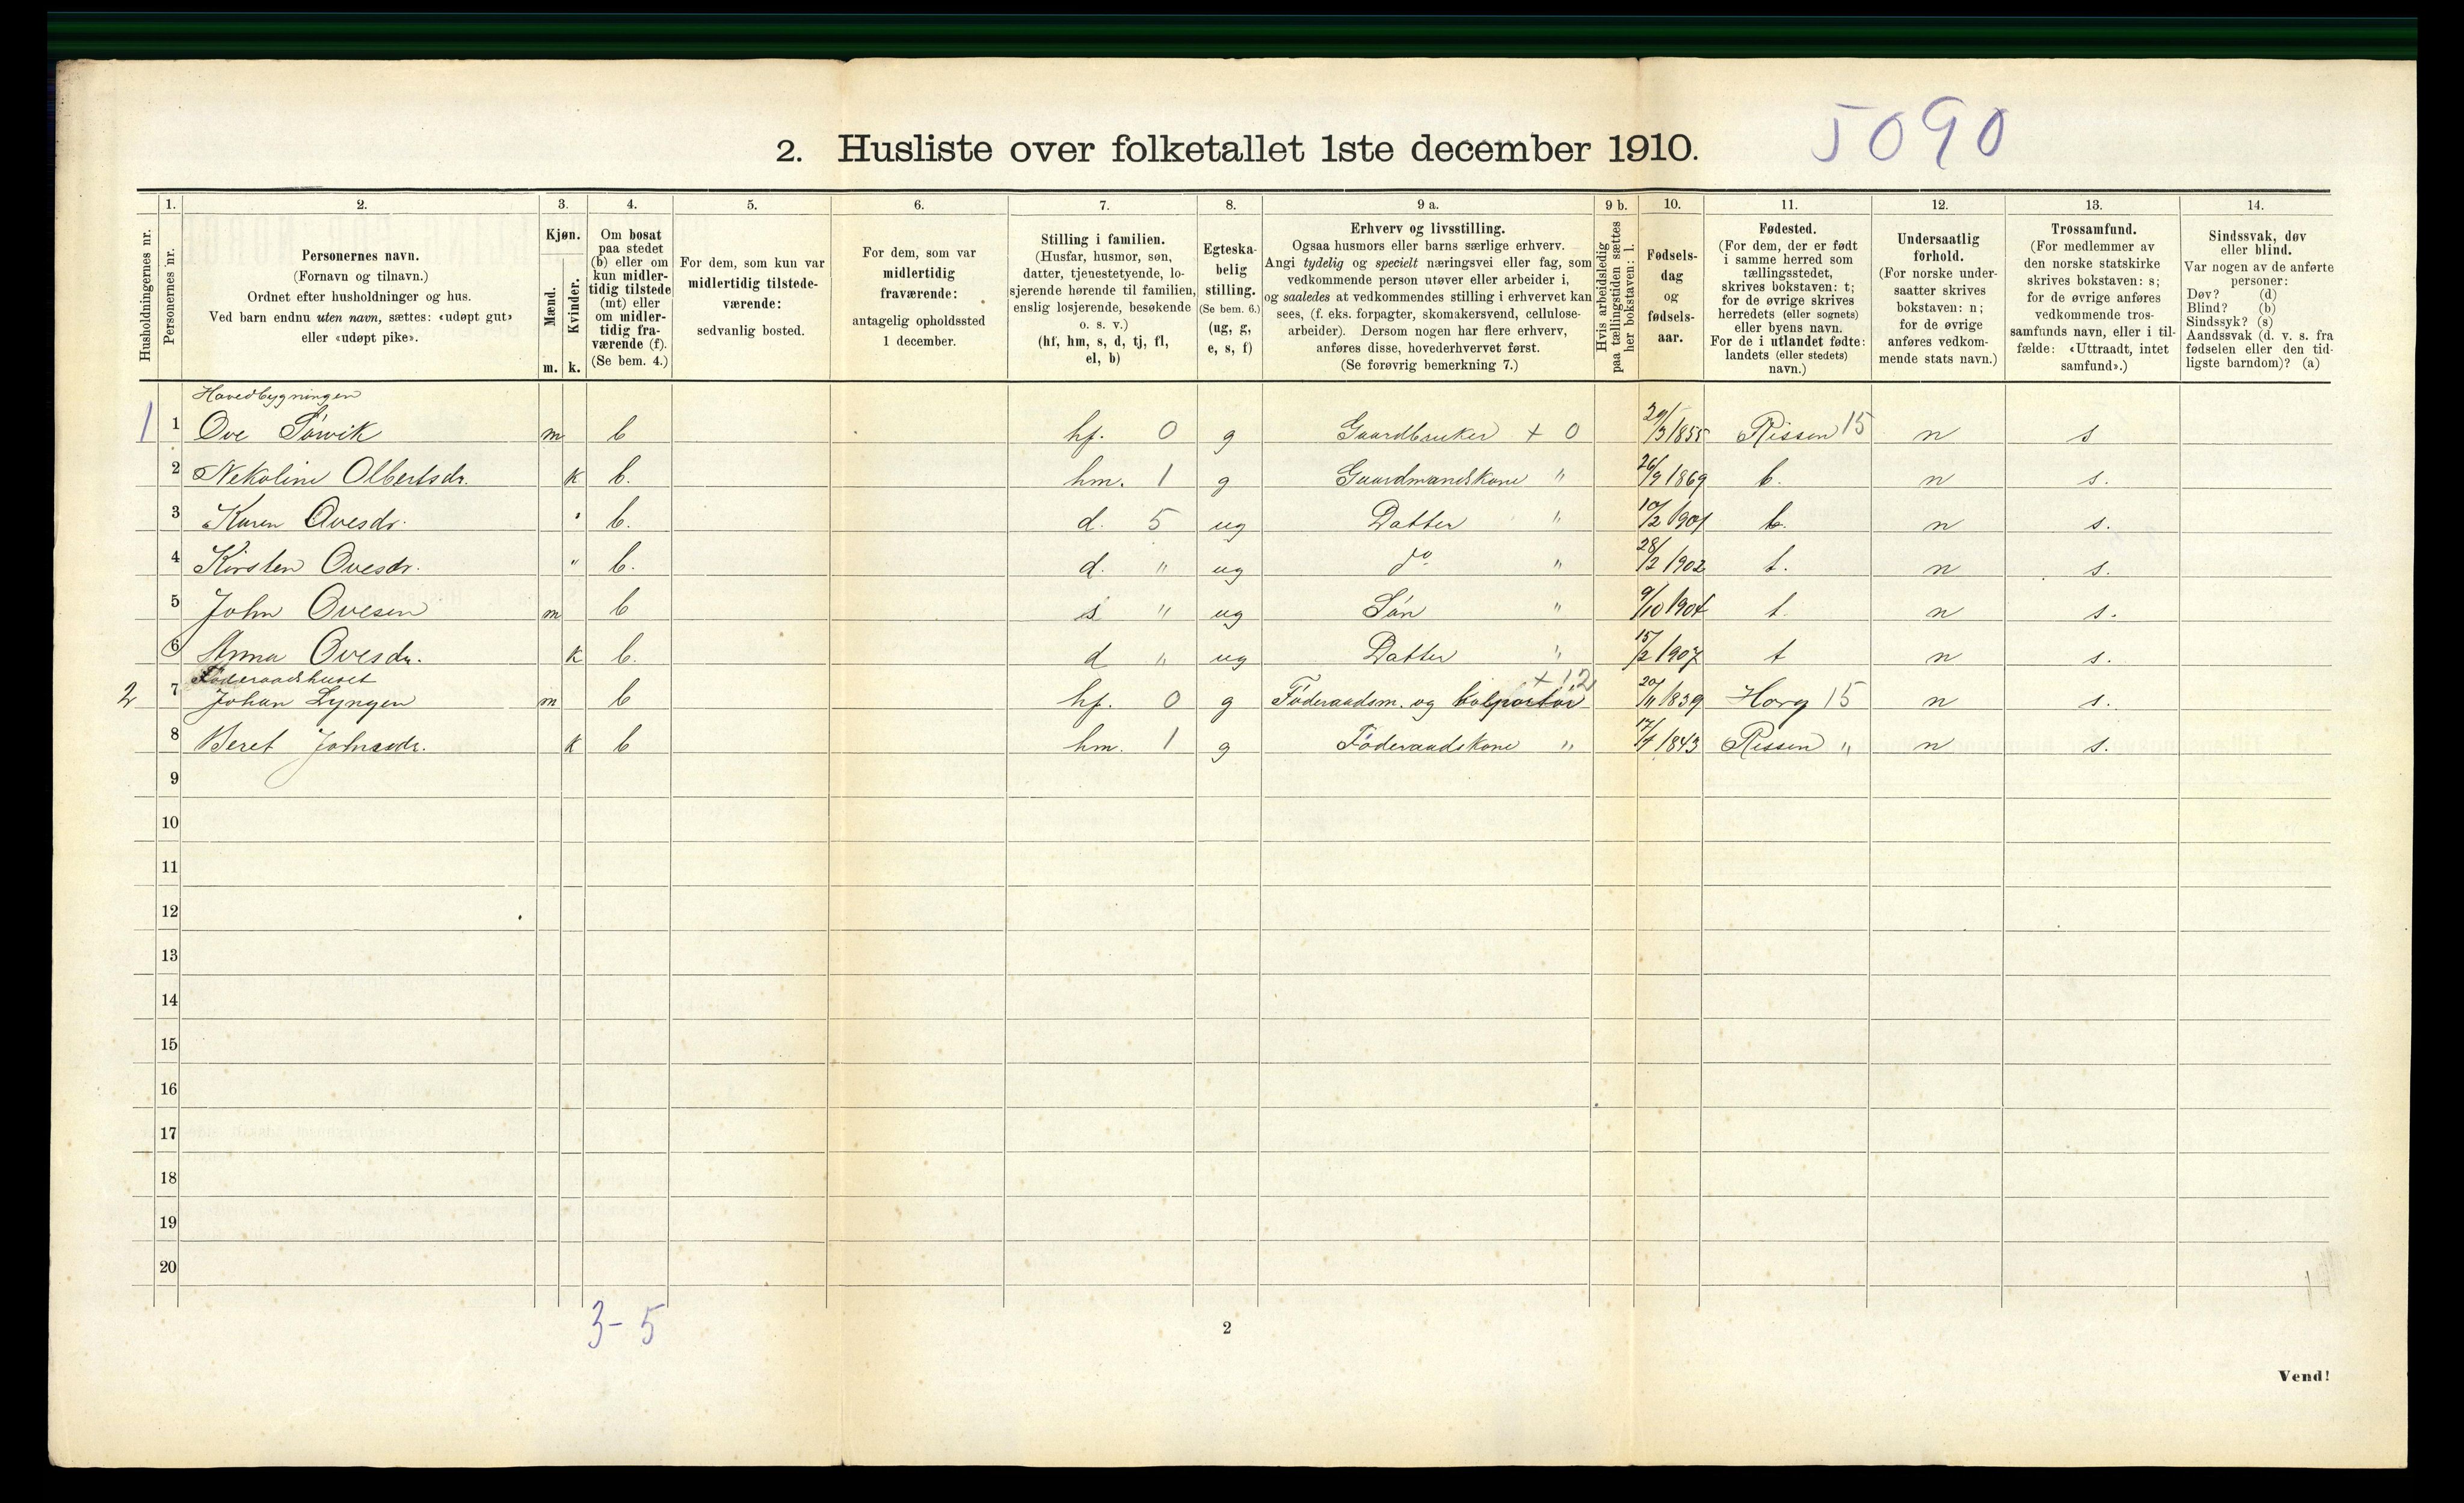 5090
2. Husliste over folketallet 1ste december 1910.
Husholdningernes nr.
1. Personernes nr.
2. Personernes navn. (Fornavn og tilnavn.) Ordnet efter husholdninger og hus. Ved barn endnu uten navn, sættes: «udøpt gut» eller «udøpt pike».
3. Kjøn. Mænd. m. Kvinder. k.
4. Om bosat paa stedet (b) eller om kun midlertidig tilstede (mt) eller om midlertidig fraværende (f). (Se bem. 4.)
5. For dem, som kun var midlertidig tilstedeværende: sedvanlig bosted.
6. For dem, som var midlertidig fraværende: antagelig opholdssted 1 december.
7. Stilling i familien. (Husfar, husmor, søn, datter, tjenestetyende, losjerende hørende til familien, enslig losjerende, besøkende o. s. v.) (hf, hm, s, d, tj, fl, el, b)
8. Egteskabelig stilling. (Se bem. 6.) (ug, g, e, s, f)
9 a. Erhverv og livsstilling. Ogsaa husmors eller barns særlige erhverv. Angi tydelig og specielt næringsvei eller fag, som vedkommende person utøver eller arbeider i, og saaledes at vedkommendes stilling i erhvervet kan sees, (f. eks. forpagter, skomakersvend, cellulosearbeider). Dersom nogen har flere erhverv, anføres disse, hovederhvervet først. (Se forøvrig bemerkning 7.)
9 b. Hvis arbeidsledig paa tællingstiden sættes her bokstaven: l.
10. Fødselsdag og fødselsaar.
11. Fødested. (For dem, der er født i samme herred som tællingsstedet, skrives bokstaven: t; for de øvrige skrives herredets (eller sognets) eller byens navn. For de i utlandet fødte: landets (eller stedets) navn.)
12. Undersaatlig forhold. (For norske undersaatter skrives bokstaven: n; for de øvrige anføres vedkommende stats navn.)
13. Trossamfund. (For medlemmer av den norske statskirke skrives bokstaven: s; for de øvrige anføres vedkommende trossamfunds navn, eller i tilfælde: «Uttraadt, intet samfund».)
14. Sindssvak, døv eller blind. Var nogen av de anførte personer: Døv? (d) Blind? (b) Sindssyk? (s) Aandssvak (d. v. s. fra fødselen eller den tidligste barndom)? (a)
Hovedbygningen
1 1 Ove Sørvik m b hf. 0 g Gaardbruker + 0 29/3 1855 Rissen 15 n s
2 Nekoline Olbertsdr. k b. hm. 1 g Gaardmandskone " 26/9 1869 t. n s.
3 Karen Ovesdr. " b. d. 5 ug Datter " 10/2 1901 t. n s.
4 Kirsten Ovesdr. " b. d. " ug do " 28/2 1902 t. n s.
5 John Ovesen m b s " ug Søn " 9/10 1904 t. n s.
6 Anna Ovesdr. k b. d " ug Datter " 15/2 1907 t n s.
Føderaadshuset
2 7 Johan Lyngen m b hf. 0 g Føderaadsm. og kolportør + 1,2 20/11 1839 Horg 15 n s.
8 Beret Johnsdr. k b hm. 1 g Føderaadskone " 17/4 1843 Rissen " n s.
9
10
11
12
13
14
15
16
17
18
19
20
3-5
2
Vend!